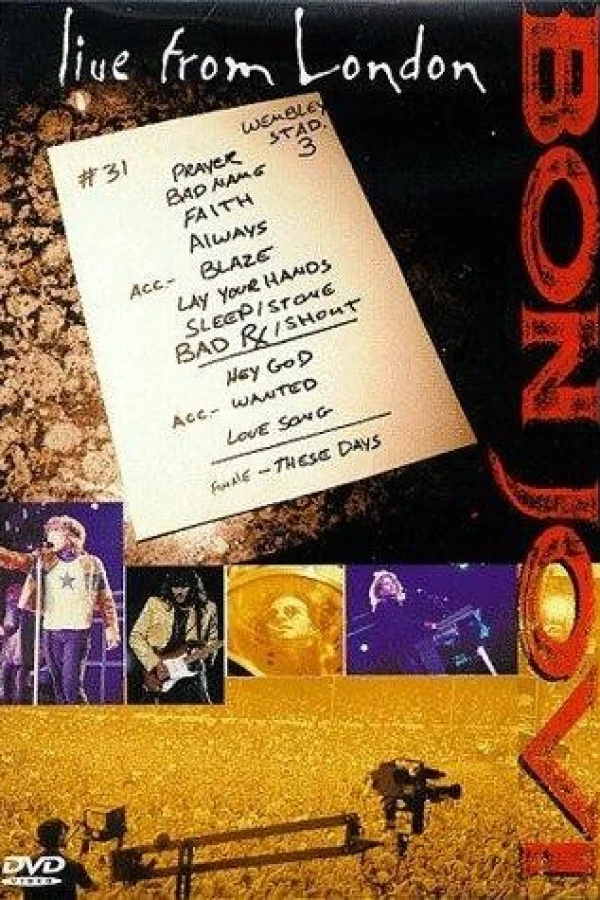 live from London
BON JOVI
WEMBLEY
STAD.
3
#31
PRAYER
BAD NAME
FAITH
AlWAYS
ACC- BLAZE
LAY YOUR HANDS
SLEEP/STONE
BAD Rx/SHOUT
HEY GOD
ACC- WANTED
LOVE SONG
FINALE - THESE DAYS
DVD
VIDEO